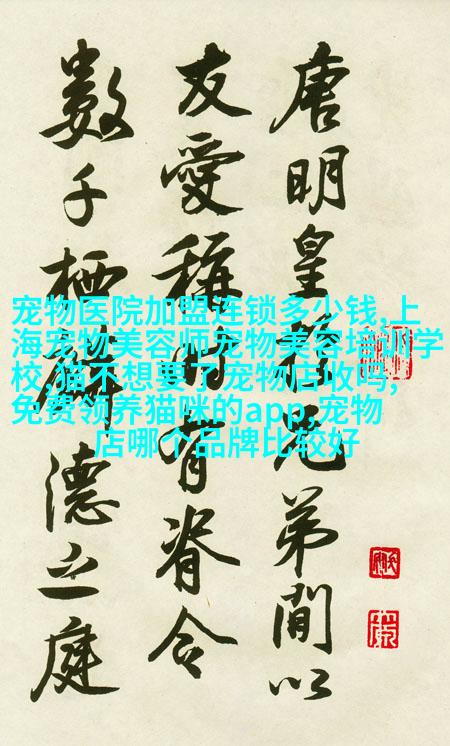 唐明皇於兄弟間以
友愛稱時有脊令
數千栖麟德之庭
宠物医院加盟连锁多少钱,上
海宠物美容师宠物美容培训学
校,猫不想要了宠物店收吗,
免费领养猫咪的app,宠物
店哪个品牌比较好